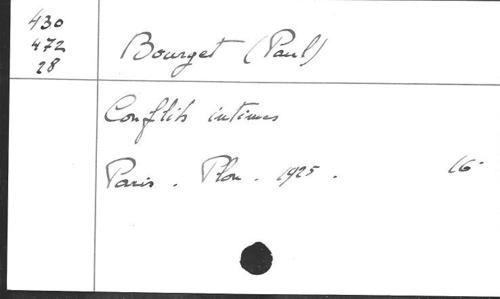 430
472
28
Bourget (Paul)
Conflits intimes
Paris. Plon. 1925. 16°